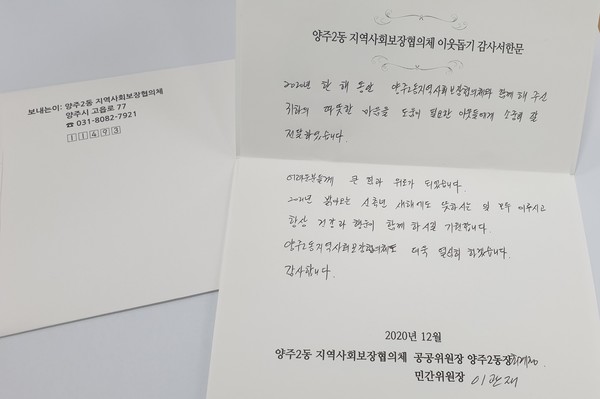 보내는이: 양주2동 지역사회보장협의체
양주시 고읍로 77
☎ 031-8082-7921
11493
양주2동 지역사회보장협의체 이웃돕기 감사서한문
2020년 한 해 동안 양주2동지역사회보장협의체와 함께 해 주신
귀하의 따뜻한 마음을 도움이 필요한 이웃들에게 소중히 잘
전달하였습니다.
어려운분들께 큰 힘과 위로가 되었습니다.
2021년 밝아오는 신축년 새해에도 뜻하시는 일 모두 이루시고
항상 건강과 행운이 함께 하시길 기원합니다.
양주2동지역사회보장협의체도 더욱 열심히 하겠습니다.
감사합니다.
2020년 12월
양주2동 지역사회보장협의체 공공위원장 양주2동장
민간위원장 이관재